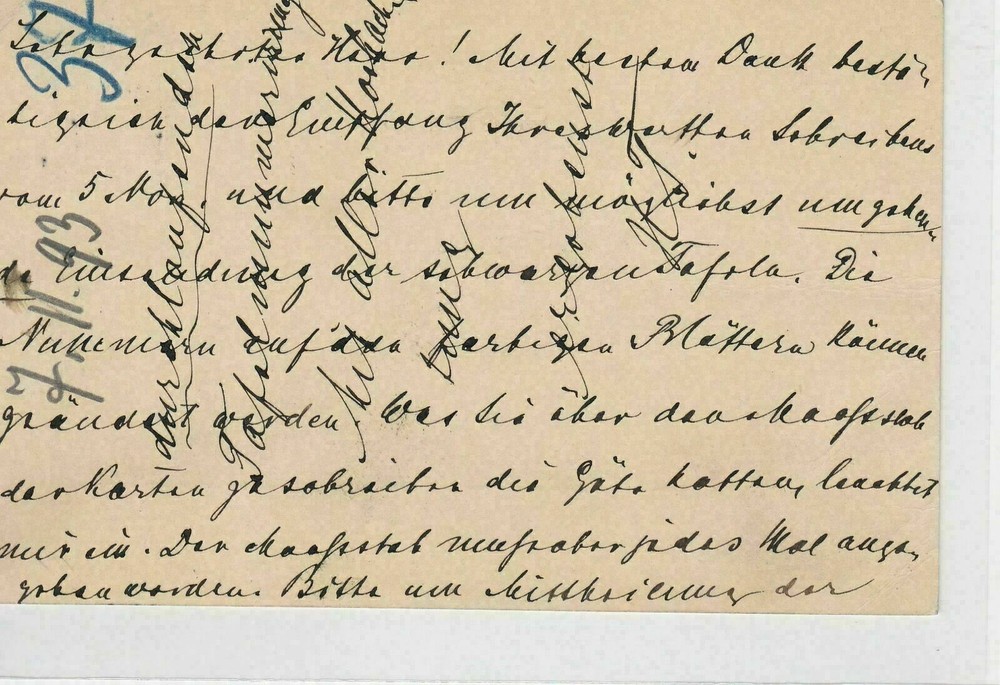 Sehr geehrter Herr! Mit bestem Dank bestä-
tige ich den Empfang Ihres werthen Schreibens
vom 5 Nov. und bitte um möglichst umgehen-
de Einsendung der schwarzen Tafeln. Die
Nummern auf den farbigen Blättern können
geändert werden. Was Sie über den Maassstab
der Karten zu schreiben die Güte hatten, leuchtet
mir ein. Der Maassstab muss aber jedes Mal ange-
geben werden. Bitte um Mittheilung der
durchlaufenden
Tafelnummerierung
Mit aller Hochach
tung
ergebenst
37
7. 11. 93